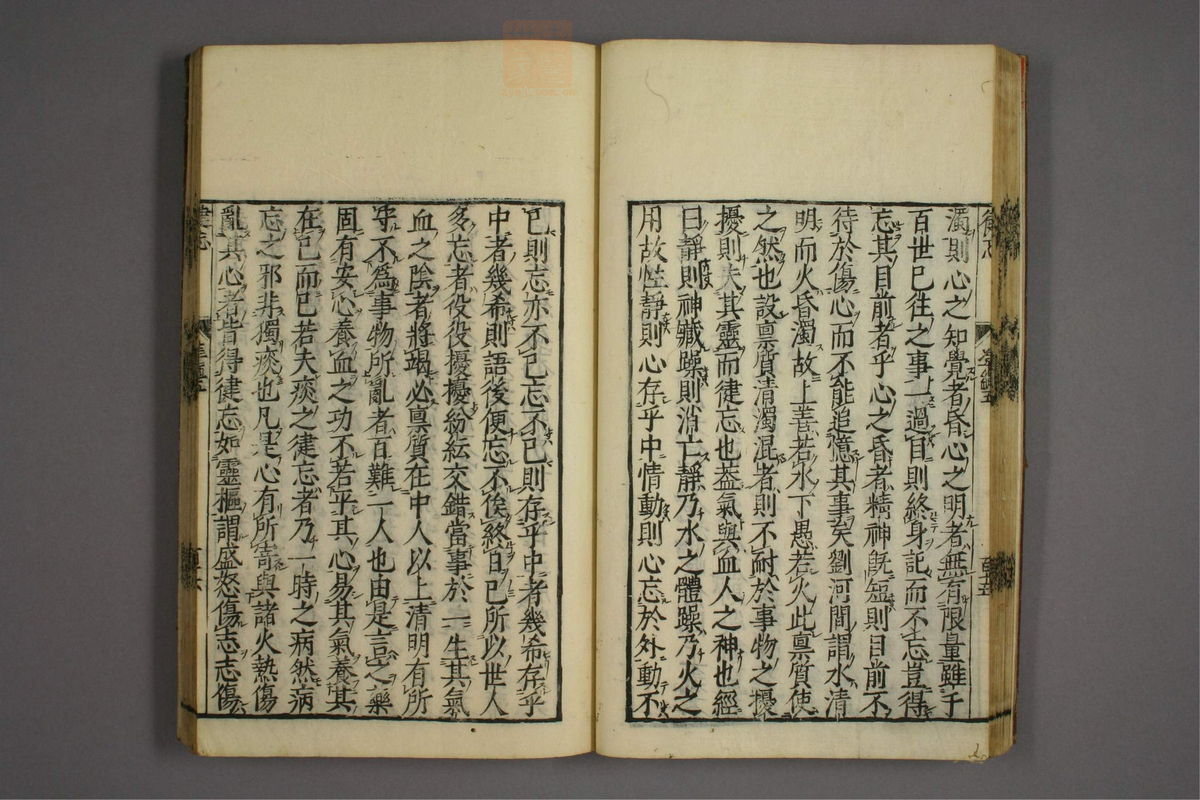 濁則心之知覺者昏心之明者無有限量雖千
百世已往之事一過目則終身記而不忘豈得
忘其目前者乎心之昏者精神既短則目前不
待於傷心而不能追憶其事矣劉河間謂水清
明而火昏濁故上善若水下愚若火此禀質使
之然也設禀質清濁混者則不耐於事物之擾
擾則失其靈而健忘也盖氣與血人之神也經
曰靜則神藏躁則消亡靜乃水之體躁乃火之
用故性靜則心存乎中情動則心忘於外動不
已則忘亦不已忘不已則存乎中者幾希存乎
中者幾希則語後便忘不俟終日已所以世人
多忘者役役擾擾紛紜交錯當事於一生其氣
血之陰者將竭必禀質在中人以上清明有所
守不為事物所亂者百難一人也由是言之藥
固有安心養血之功不若平其心易其氣養其
在己而已若夫痰之健忘者乃一時之病然病
忘之邪非獨痰也凡是心有所寄與諸火熱傷
亂其心者皆得健忘如靈樞謂盛怒傷志志傷
健忘